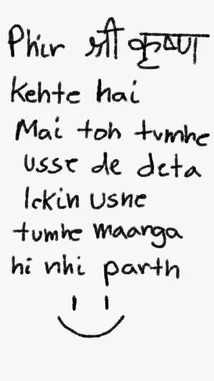 Phir श्री कृष्ण
kehte hai
Mai toh tumhe
usse de deta
lekin usne
tumhe maanga
hi nhi parth